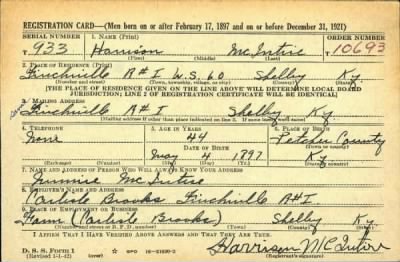 REGISTRATION CARD—(Men born on or after February 17, 1897 and on or before December 31, 1921)
SERIAL NUMBER 1. NAME (Print) ORDER NUMBER
T 933 Harrison McIntire 10693
(First) (Middle) (Last)
2. PLACE OF RESIDENCE (Print)
Finchville R#1 W.S. 60 Shelby Ky
(Number and street) (Town, township, village, or city) (County) (State)
[THE PLACE OF RESIDENCE GIVEN ON THE LINE ABOVE WILL DETERMINE LOCAL BOARD
JURISDICTION; LINE 2 OF REGISTRATION CERTIFICATE WILL BE IDENTICAL]
3. MAILING ADDRESS
Finchville R#1 Shelby Ky
[Mailing address if other than place indicated on line 2. If same insert word same]
4. TELEPHONE 5. AGE IN YEARS 6. PLACE OF BIRTH
None 44 Letcher County
DATE OF BIRTH (Town or county)
May 4 1897 Ky
(Exchange) (Number) (Mo.) (Day) (Yr.) (State or country)
7. NAME AND ADDRESS OF PERSON WHO WILL ALWAYS KNOW YOUR ADDRESS
McIntire
8. EMPLOYER'S NAME AND ADDRESS
Carlisle Brooks Finchville R#1
9. PLACE OF EMPLOYMENT OR BUSINESS
Farm (Carlisle Brooks) Shelby Ky
(Number and street or R. F. D. number) (Town) (County) (State)
I AFFIRM THAT I HAVE VERIFIED ABOVE ANSWERS AND THAT THEY ARE TRUE.
D. S. S. Form 1
(Revised 1-1-42) GPO 16—21630-2 Harrison McIntire
(Registrant's signature)